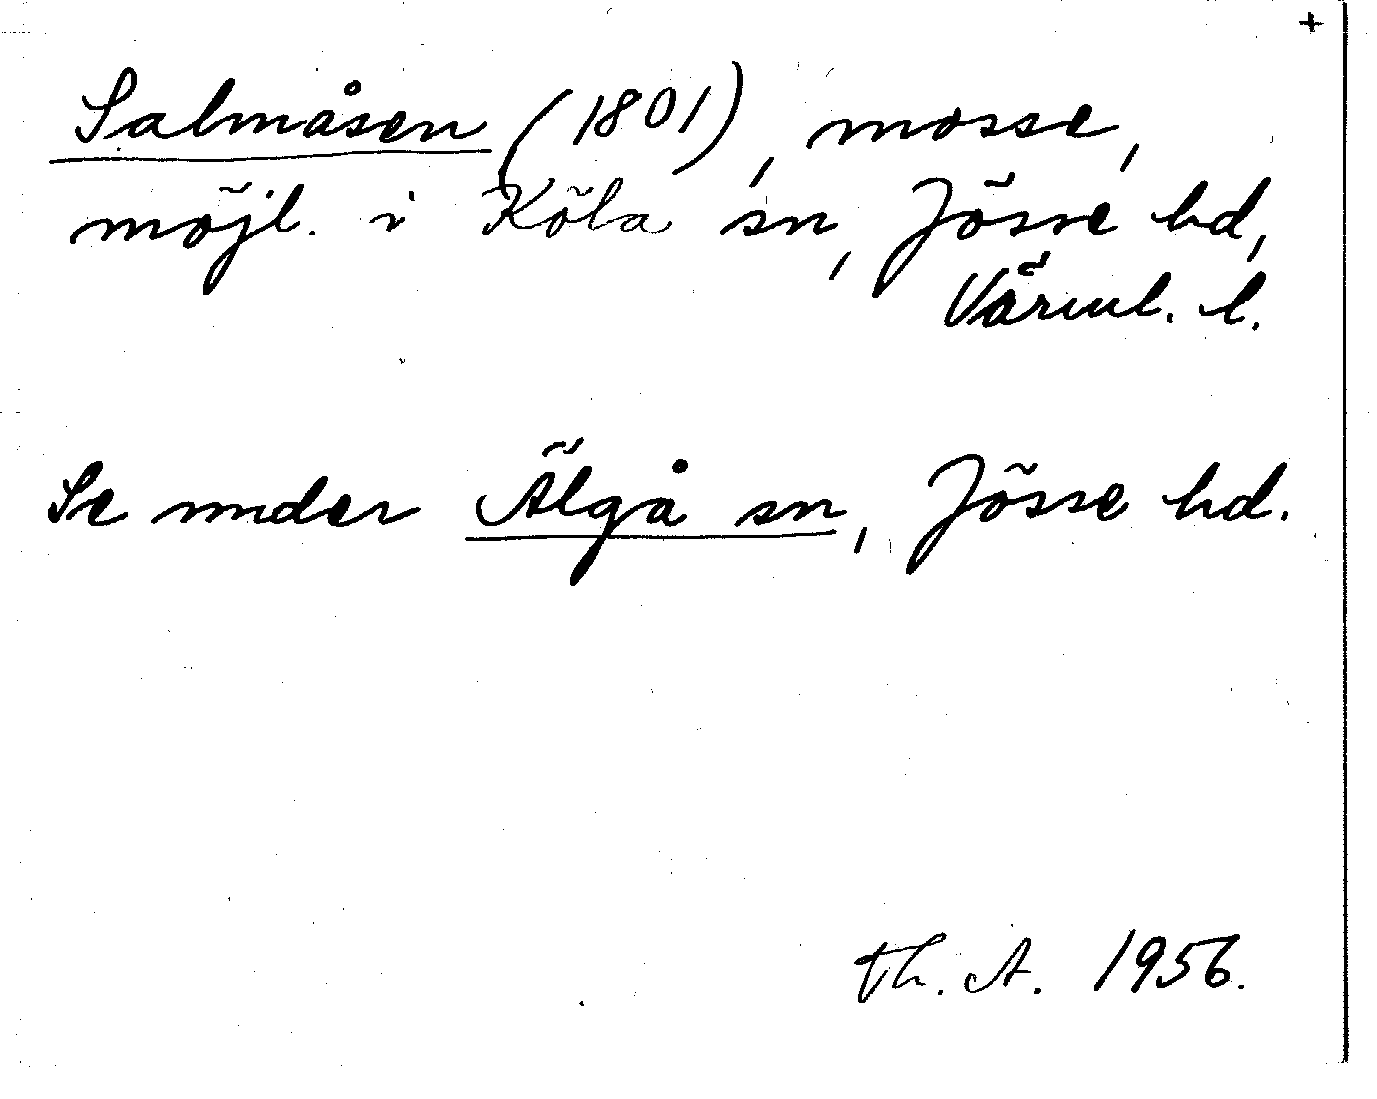 +
Salmåsen (1801), mosse,
möjl. i Köla sn, Jösse hd,
Värml. l.
Se under Älgå sn, Jösse hd.
Th. A. 1956.